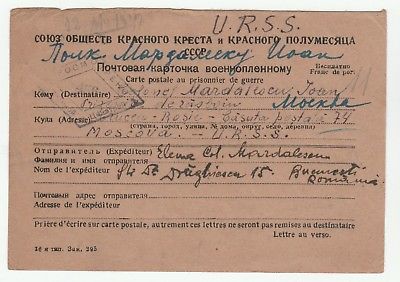 U.R.S.S.
СОЮЗ ОБЩЕСТВ КРАСНОГО КРЕСТА и КРАСНОГО ПОЛУМЕСЯЦА
СССР
Полк Мардалеску Иоан
Бесплатно
Почтовая карточка военнопленному
Franc de port
Carte postale au prisonnier de guerre
Кому (Destinataire) Colonel Mardalescu Ioan
Москва
Куда (Adresse) Crucea Rosie - Căsuta postală 74
(страна, город, улица, № дома, округ, село, деревня)
Moscova. - U.R.S.S.
Отправитель (Expéditeur) Elena Col. Mardalescu
Фамилия и имя отправителя
Nom de l'expéditeur Str. Dr. Drăghiescu 15 Bucuresti
România
Почтовый адрес отправителя
Adresse de l'expéditeur
Prière d'écrire sur carte postale, autrement ces lettres ne seront pas remises au destinataire
Lettre au verso.
16 я тип. Зак. 395